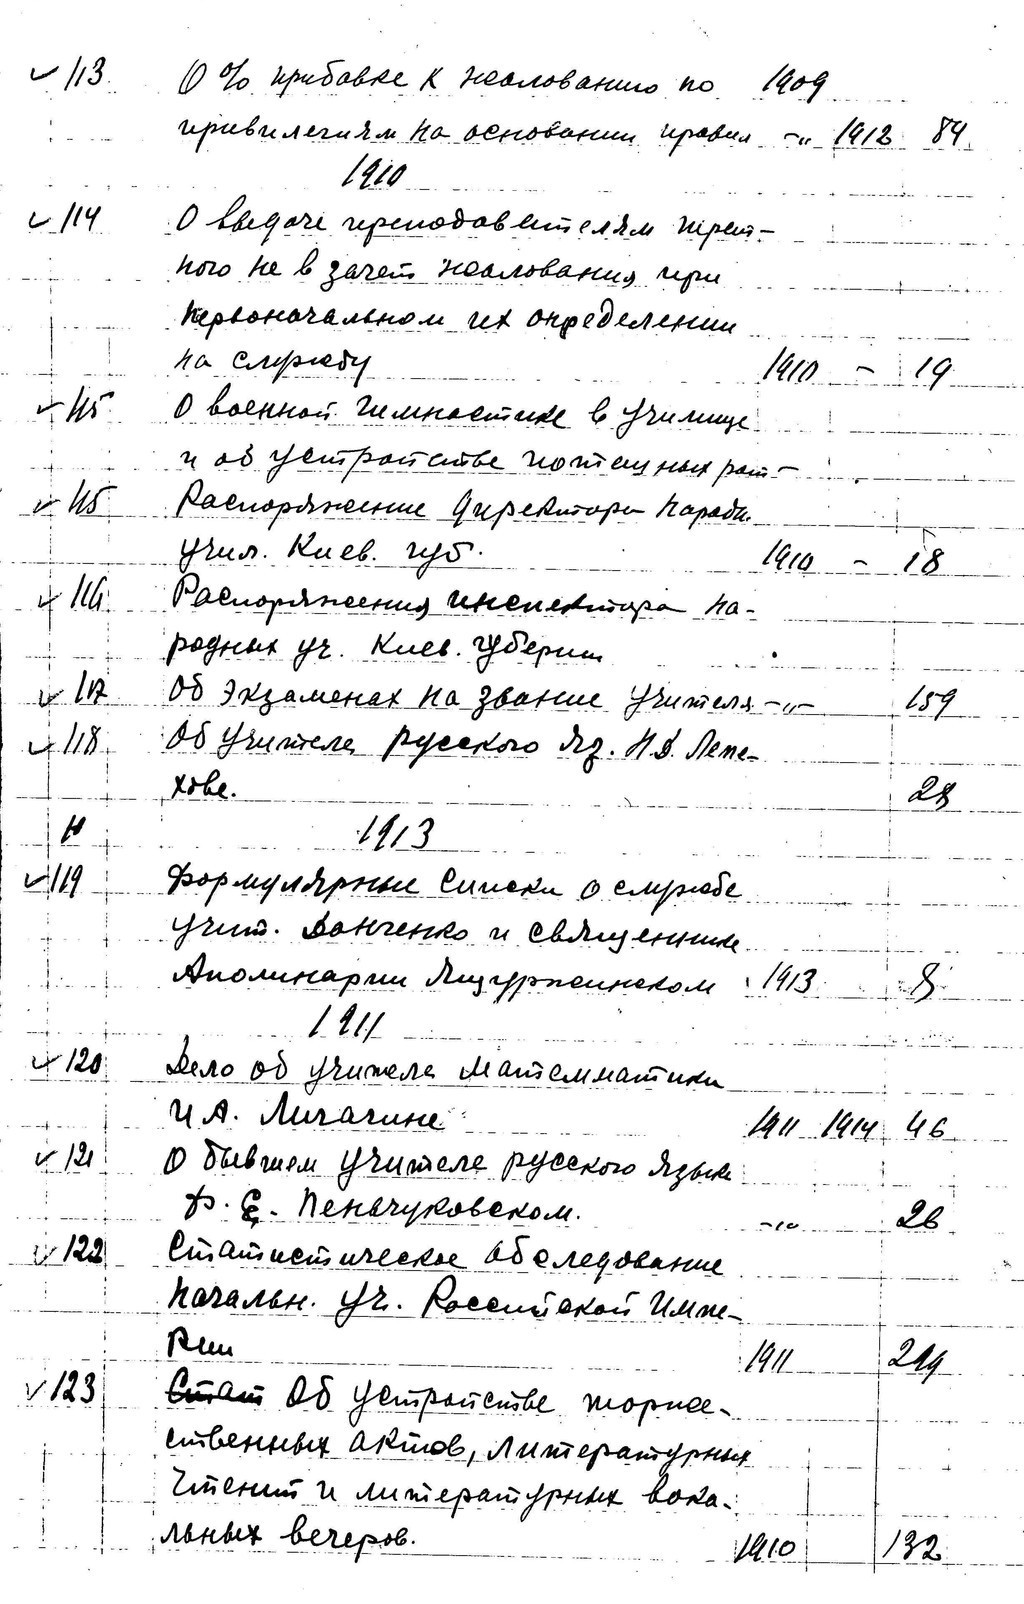 ✓ 113 О % прибавке к жалованию по 1909
привилегиям на основании правил -"- 1912 84
1910
✓ 114 О выдаче преподавателям трет-
ного не в зачет жалования при
первоначальном их определении
на службу 1910 - 19
✓ 115 О военной гимнастике в училище
и об устройстве потешных рот -
✓ 115 Распоряжение директора народн.
учил. Киев. губ. 1910 - 18
✓ 116 Распоряжения инспектора на-
родных уч. Киев. губернии
✓ 117 Об экзаменах на звание учителя -"- 159
✓ 118 Об учителе русского яз. Н.Д. Лепе-
хове. 28
1913
✓ 119 Формулярные списки о службе
учит. Данченко и священнике
Аполинарии Ящуржинском 1913 8
1911
✓ 120 Дело об учителе математики
И А. Личагине 1911 1914 46
✓ 121 О бывшем учителе русского языка
Ф. Е. Пеньчуковском. -"- 26
✓ 122 Статистическое обследование
начальн. уч. Российской Импе-
рии 1911 299
✓ 123 Стат Об устройстве торже-
ственных актов, литературных
чтений и литературных вока-
льных вечеров. 1910 132